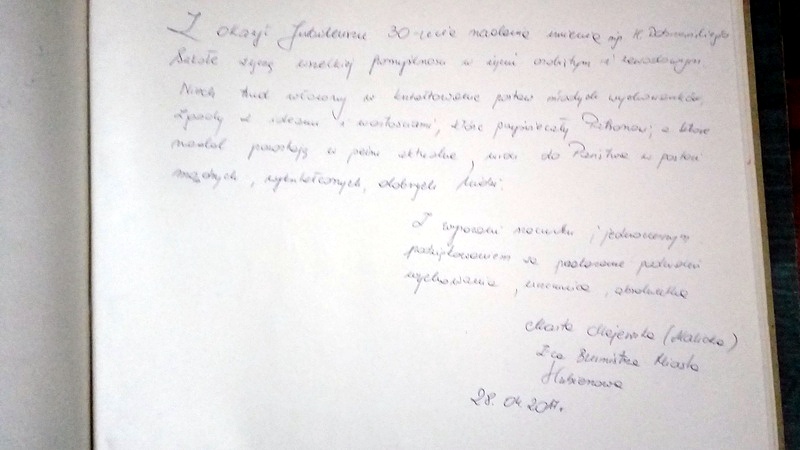 Z okazji Jubileuszu 30-lecia nadania imienia mjr H. Dobrzańskiego
Szkole życzę wszelkiej pomyślności w życiu osobistym i zawodowym.
Niech trud włożony w kształtowanie postaw młodych wychowanków,
zgodny z ideami i wartościami, które przyświecały Patronowi, a które
nadal pozostają w pełni aktualne, wróci do Państwa w postaci
mądrych, wykształconych, dobrych ludzi.
Z wyrazami szacunku i jednoczesnym
podziękowaniem za
wychowania, uczennica, absolwentka
Marta Majewska (Malicka)
Z-ca Burmistrza Miasta
Hubieszowa
28.04.2017r.